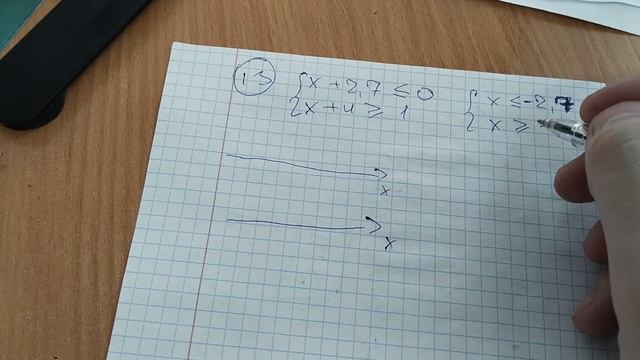 13
{ x + 2,7 ≤ 0
{ x + 4 ≥ 1
{ x ≤ -2,7
{ x ≥ -
x
x